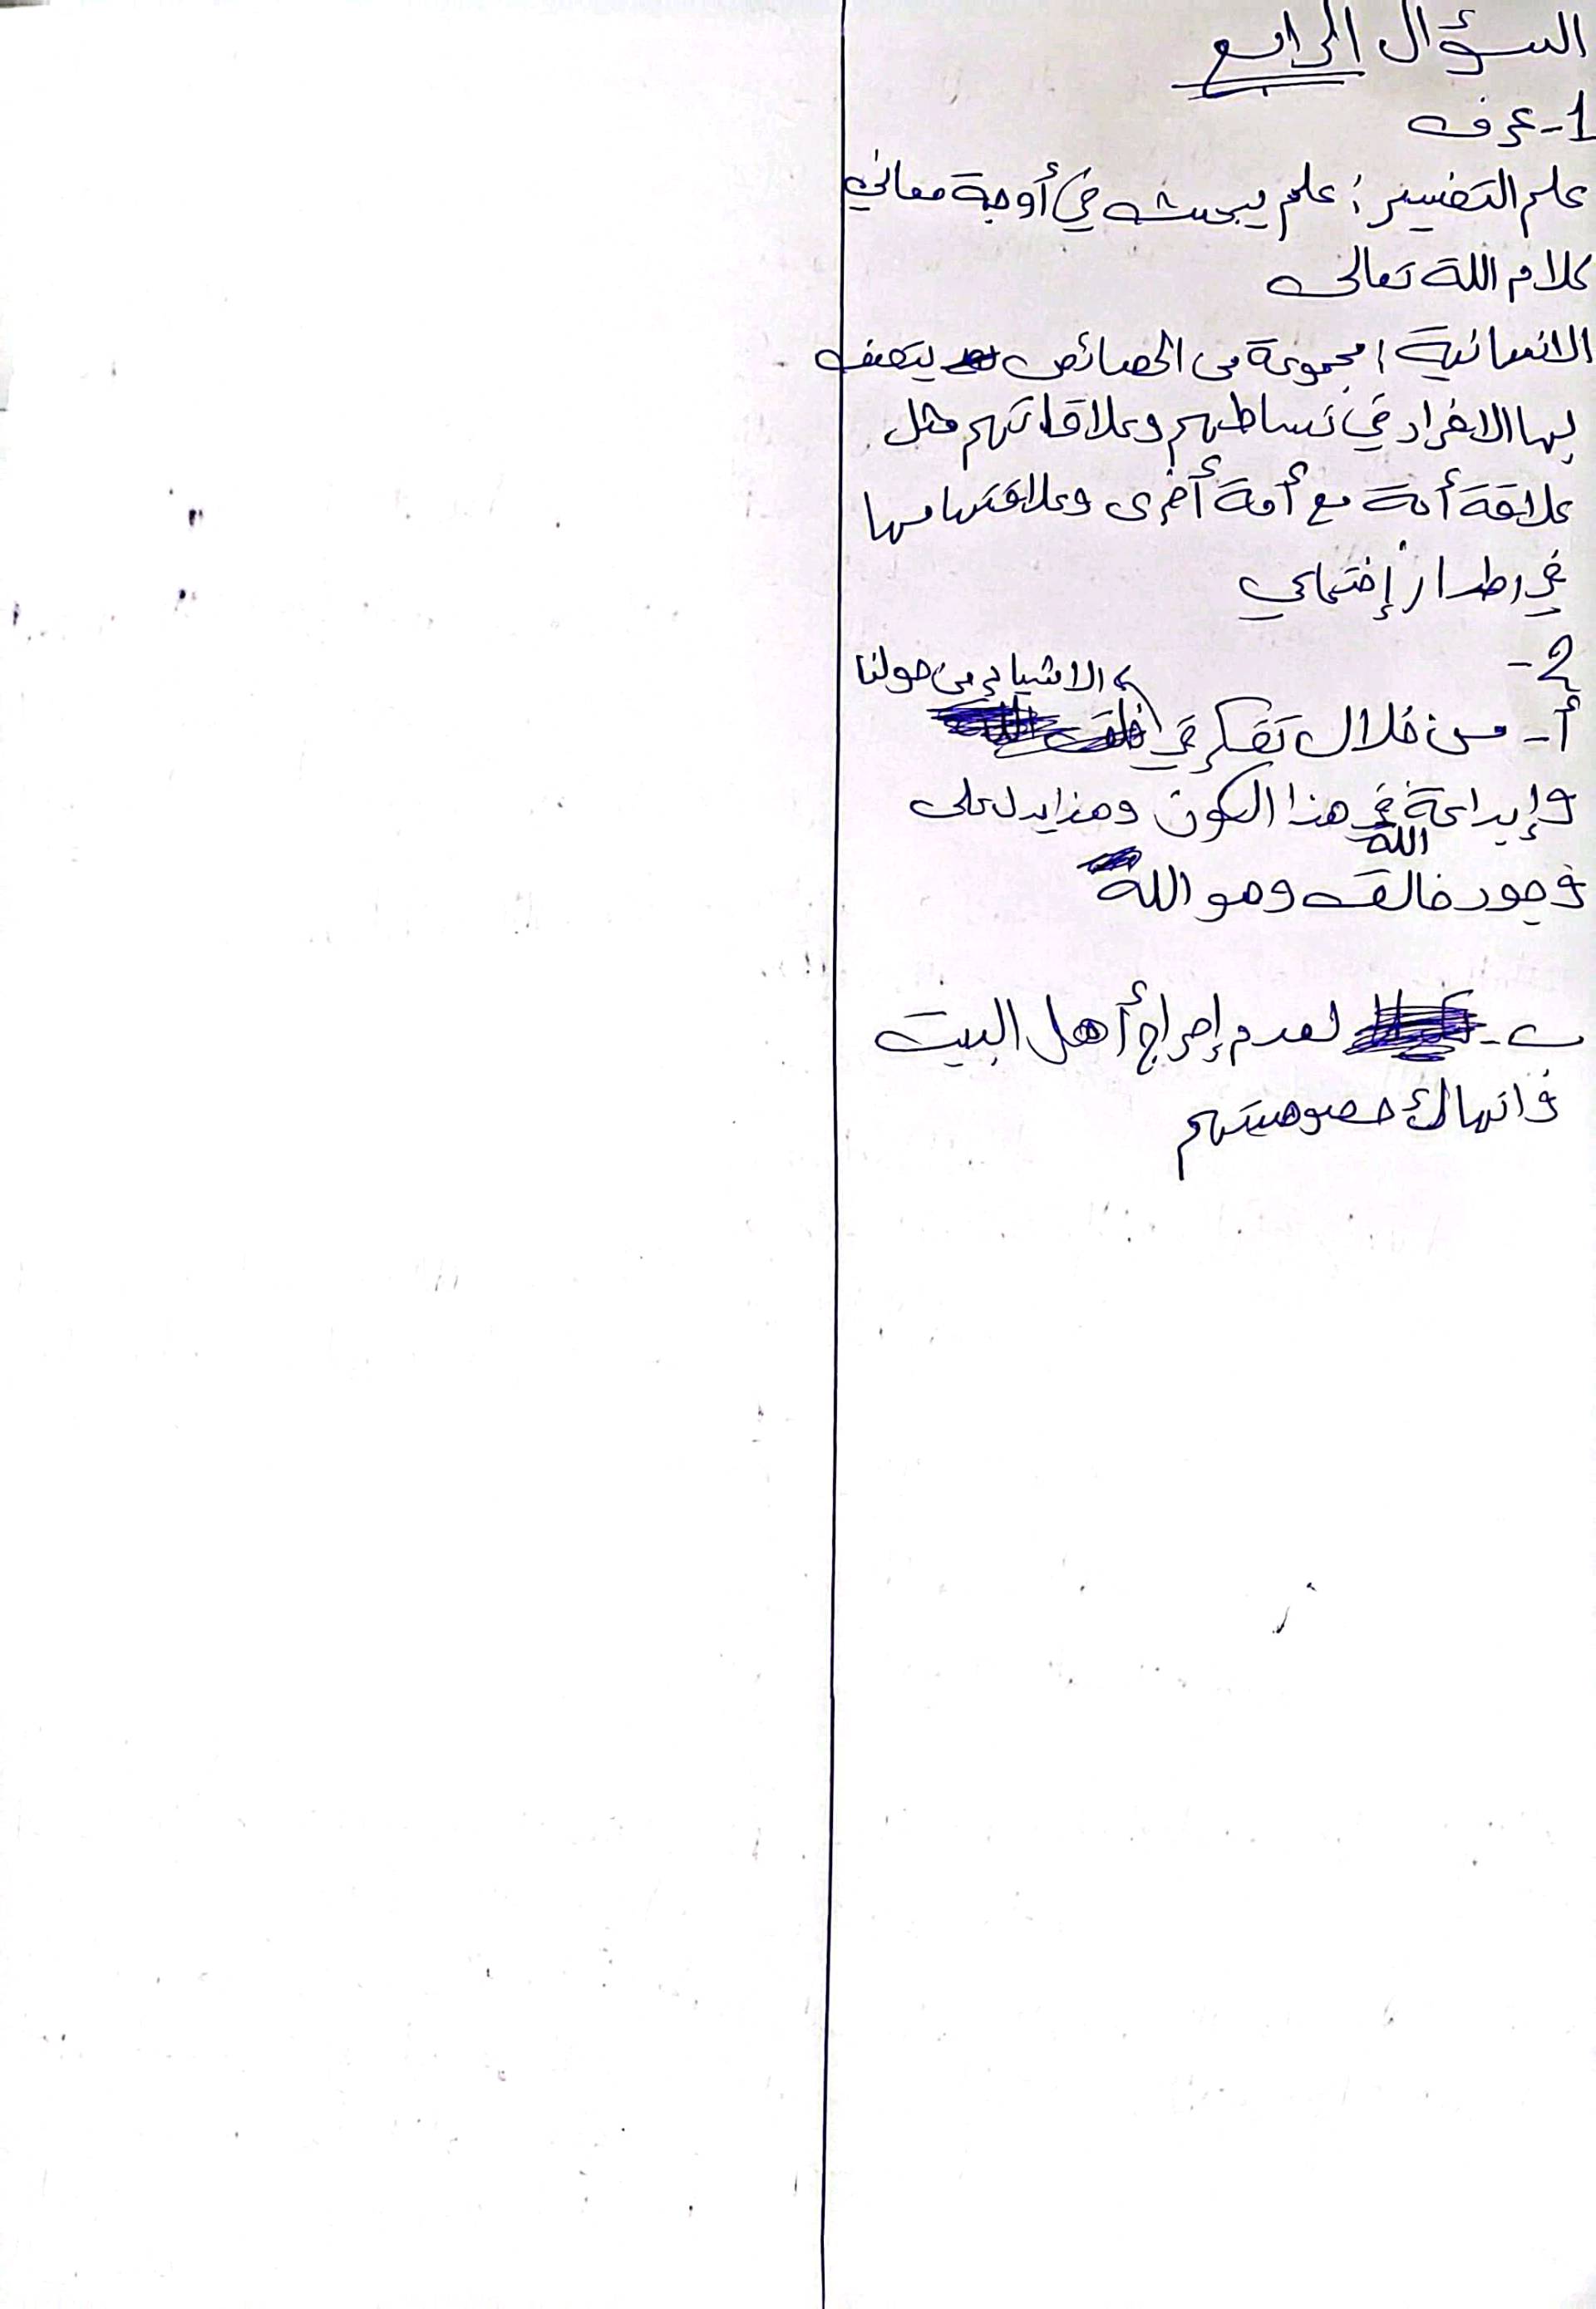 السؤال الرابع
1- عرف
علم التفسير : علم يبحث في أوجة معاني
كلام اللة تعالى
الانسانية : مجموعة من الخصائص يتصف
بها الافراد في نشاطهم وعلاقاتهم مثل
علاقة أمة مع أمة أخرى وعلاقتها معها
في اطار إجتماعي
2-
أ- من خلال تفكر في الاشياء من حولنا
وإبداعة في هذا الكون وهذا يدل على
اللة
وجود خالق وهو اللة
ب- لعدم إحراج أهل البيت
وانهاك خصوصيتهم